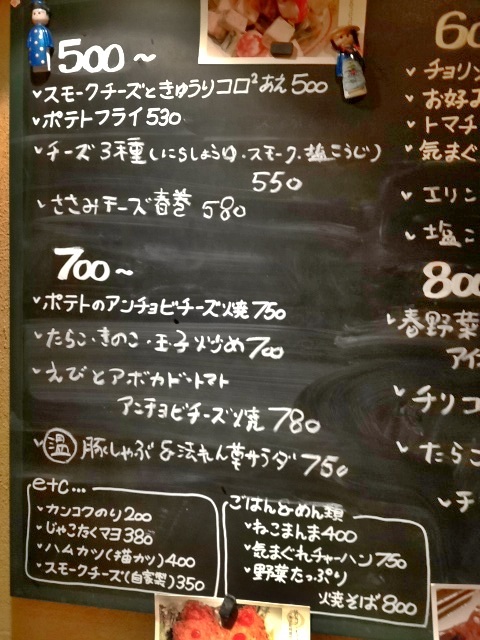 500～
スモークチーズときゅうりコロ²あえ 500
ポテトフライ 530
チーズ3種(にらしょうゆ、スモーク、塩こうじ)
550
ささみチーズ春巻 580
700～
ポテトのアンチョビチーズ焼 750
たらこ・きのこ・玉子炒め 700
えびとアボカド・トマト
アンチョビチーズ焼 780
温 豚しゃぶ&法れん草サラダ 750
etc...
カンコクのり 200
じゃこたくマヨ 380
ハムカツ(猫カツ) 400
スモークチーズ(自家製) 350
ごはん&めん類
ねこまんま 400
気まぐれチャーハン 750
野菜たっぷり
焼そば 800
60
チョリソ
お好み
トマチ
気まぐ
エリン
塩こ
800
春野菜
アイ
チリコ
たらこ
チ